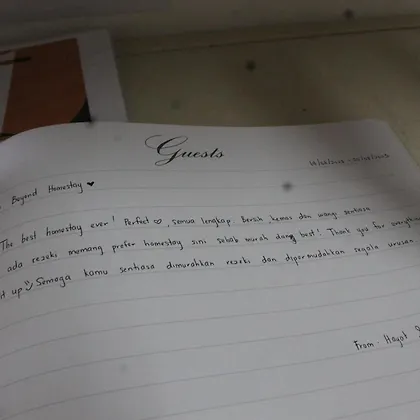 Guests
Beyond Homestay ♥
The best homestay ever! Perfect ∞, semua lengkap. Bersih, kemas dan wangi sentiasa
ada rezeki memang prefer homestay sini sebab murah dang best! Thank you for everything
it up Semoga kamu sentiasa dimurahkan rezeki dan dipermudahkan segala urusan
From: Hayat